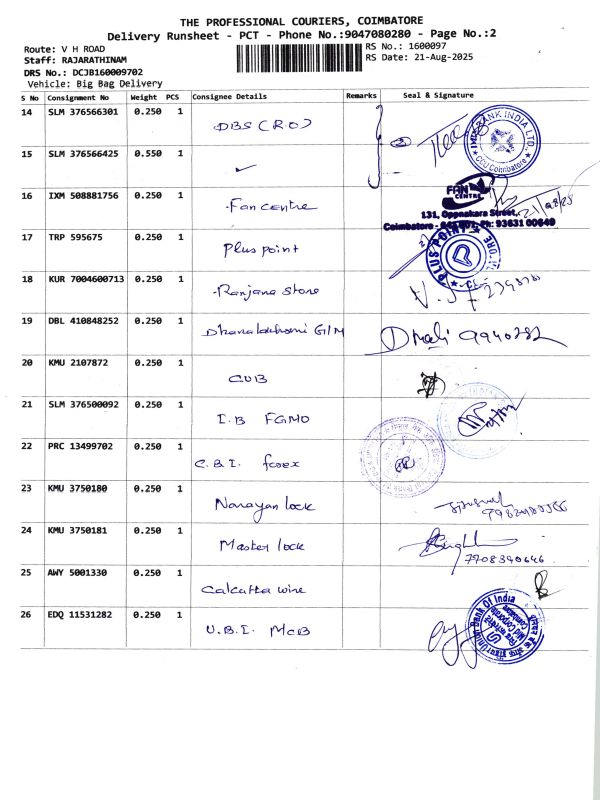 THE PROFESSIONAL COURIERS, COIMBATORE
Delivery Runsheet - PCT - Phone No.:9047080280 - Page No.:2
Route: V H ROAD
RS No.: 1600097
Staff: RAJARATHINAM
RS Date: 21-Aug-2025
DRS No.: DCJB160009702
Vehicle: Big Bag Delivery
S No Consignment No Weight PCS Consignee Details Remarks Seal & Signature
14 SLM 376566301 0.250 1 DBS (RO)
15 SLM 376566425 0.550 1 ✓
16 IXM 508881756 0.250 1 Fan centre
FAN CENTRE
131, Oppnakara Street,
17 TRP 595675 0.250 1 Plus point
PLUS POINT
18 KUR 7004600713 0.250 1 Ranjana Store
19 DBL 410848252 0.250 1 Dhanalakshmi G/M
20 KMU 2107872 0.250 1 CUB
21 SLM 376500092 0.250 1 I.B FGMO
22 PRC 13499702 0.250 1 C.B.I. forex
23 KMU 3750180 0.250 1 Narayan lock
24 KMU 3750181 0.250 1 Master lock
7708340646
25 AWY 5001330 0.250 1 Calcutta wire
26 EDQ 11531282 0.250 1 U.B.I. MCB
Union Bank Of India